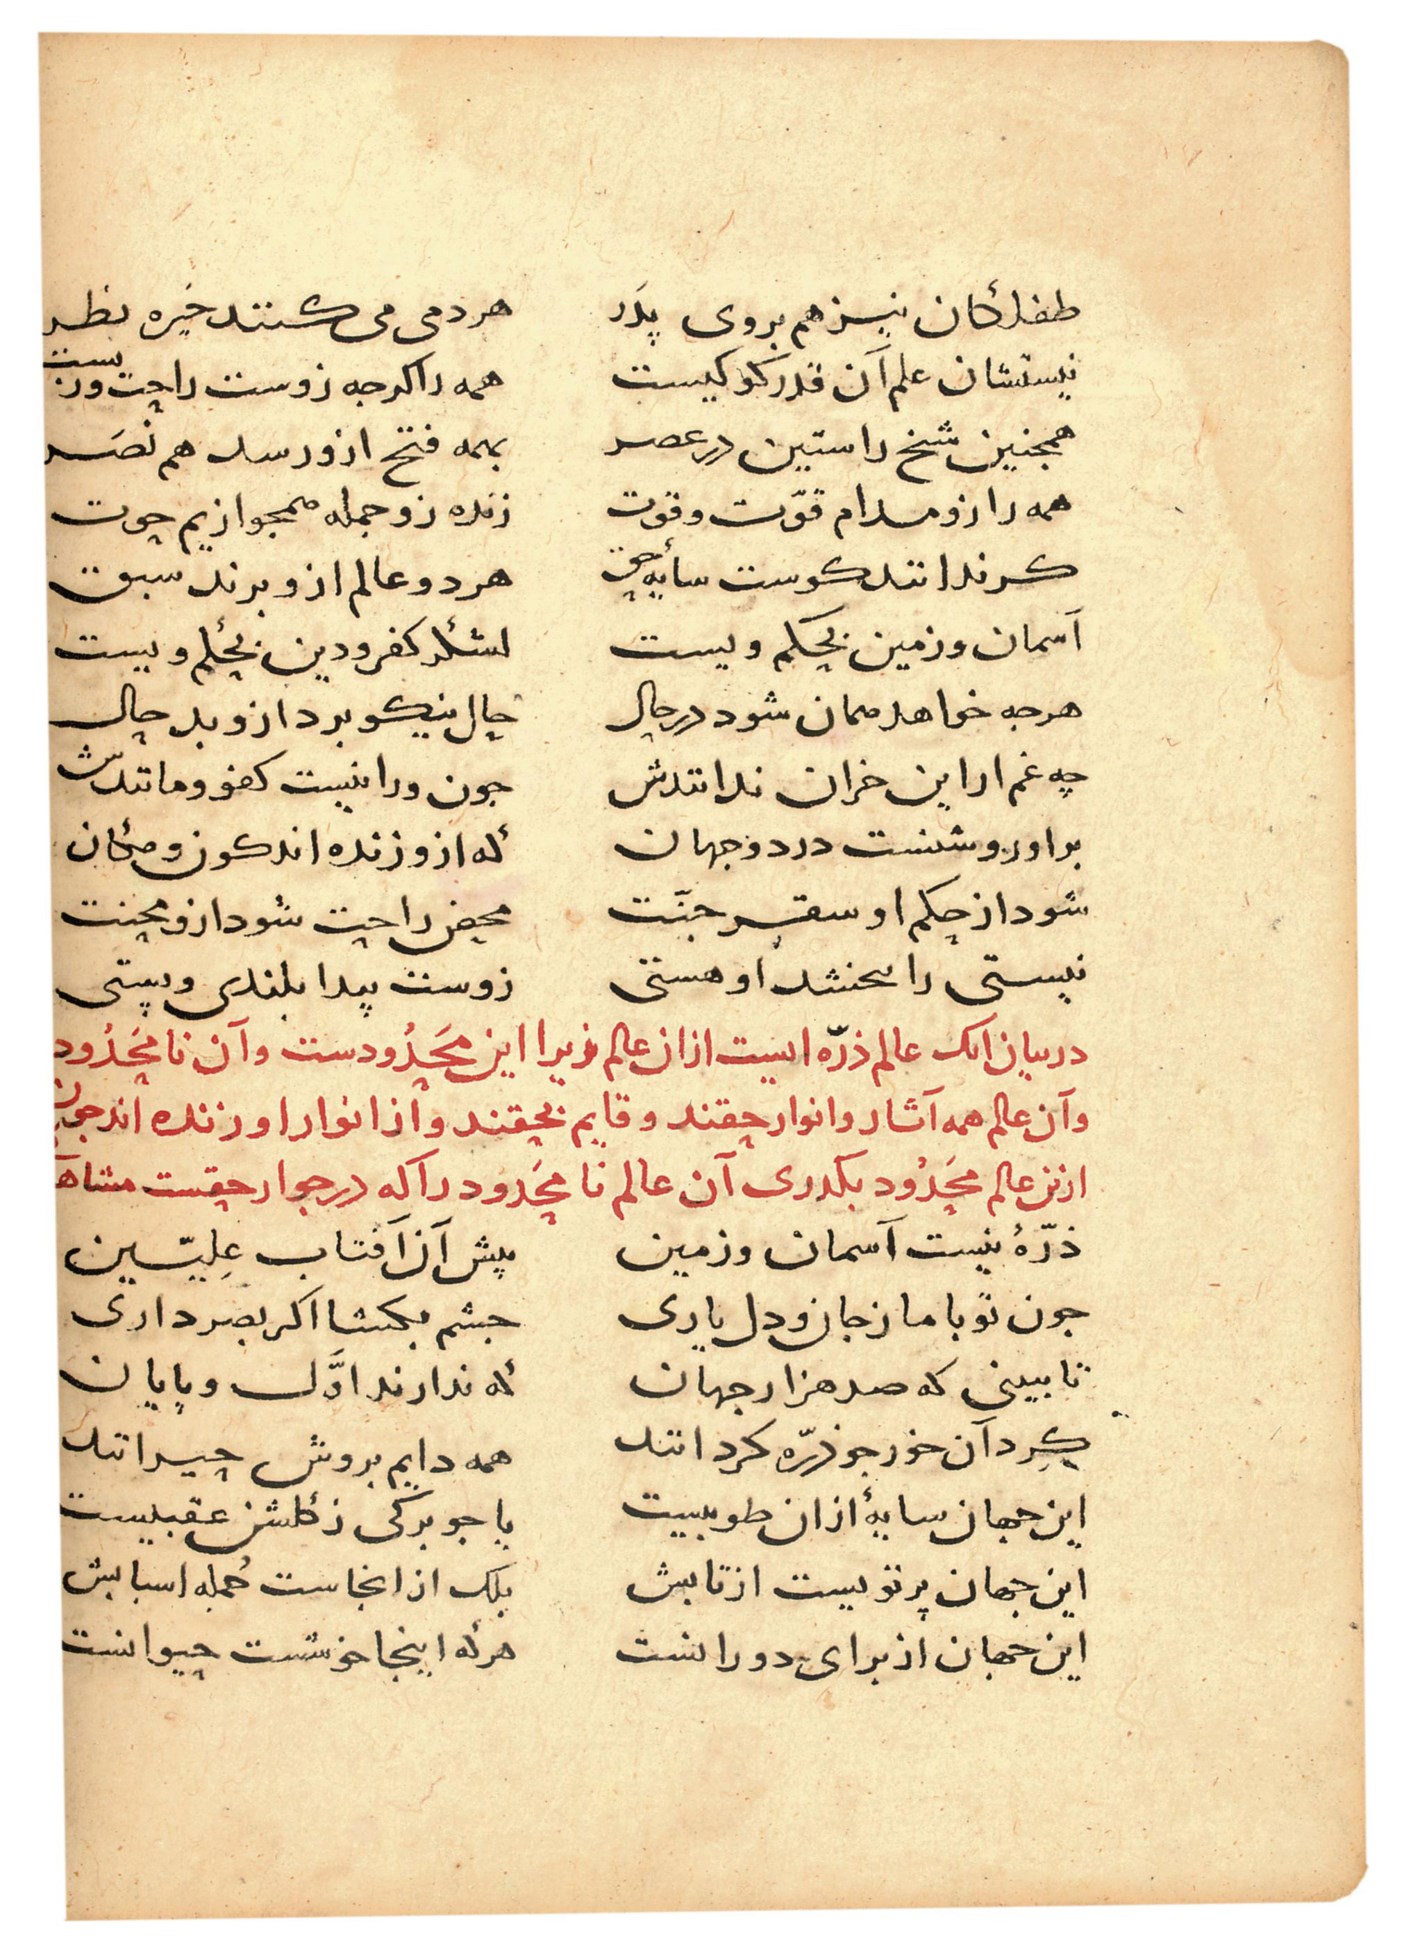 طفلکان نیز هم بروی پدر هر دمی می کنند خیره نظر
نیستشان علم آن قدر کو کیست همه را کرجه زوست راحت وزیست
همجنین شیخ راستین در عصر بهمه فتح ازو رسد هم نصر
همه را زو مدام قوّت و قوت زنده زو جمله همجو از یم حوت
کر ندانند کوست سایۀ حق هر دو عالم ازو برند سبق
آسمان و زمین بحکم ویست لشکر کفر و دین بحکم ویست
هرجه خواهد همان شود در حال حال نیکو برد ازو بد حال
چه غم ار این خران ندانندش جون ورا نیست کفو و مانندش
بر او روشنست در دو جهان که ازو زنده اند کون و مکان
شود از حکم او سقر جنّت محض راحت شود ازو محنت
نیستی را بخشد او هستی زوست پیدا بلندی و پستی
در بیان انک عالم ذرّه ایست از ان عالم زیرا این محدودست و آن نا محدود
و آن عالم همه آثار و انوار حقند و قایم بحقند و از انوار او زنده اند جون
ازین عالم محدود بکذری آن عالم نا محدود را که در جوار حقست
ذرّۀ نیست آسمان و زمین پیش آن آفتاب علیّین
جون تو با ما ز جان و دل یاری جشم بکشا اکر بصر داری
تا ببینی که صد هزار جهان که ندارند اوّل و پایان
کرد آن خور جو ذرّه کردانند همه دایم بروش حیرانند
این جهان سایۀ از ان طوبیست یا جو برکی ز کلشن عقبیست
این جهان پرتویست از تابش بلک از انجاست جمله اسبابش
این جهان از برای دورانست هرکه اینجا خوشست حیوانست